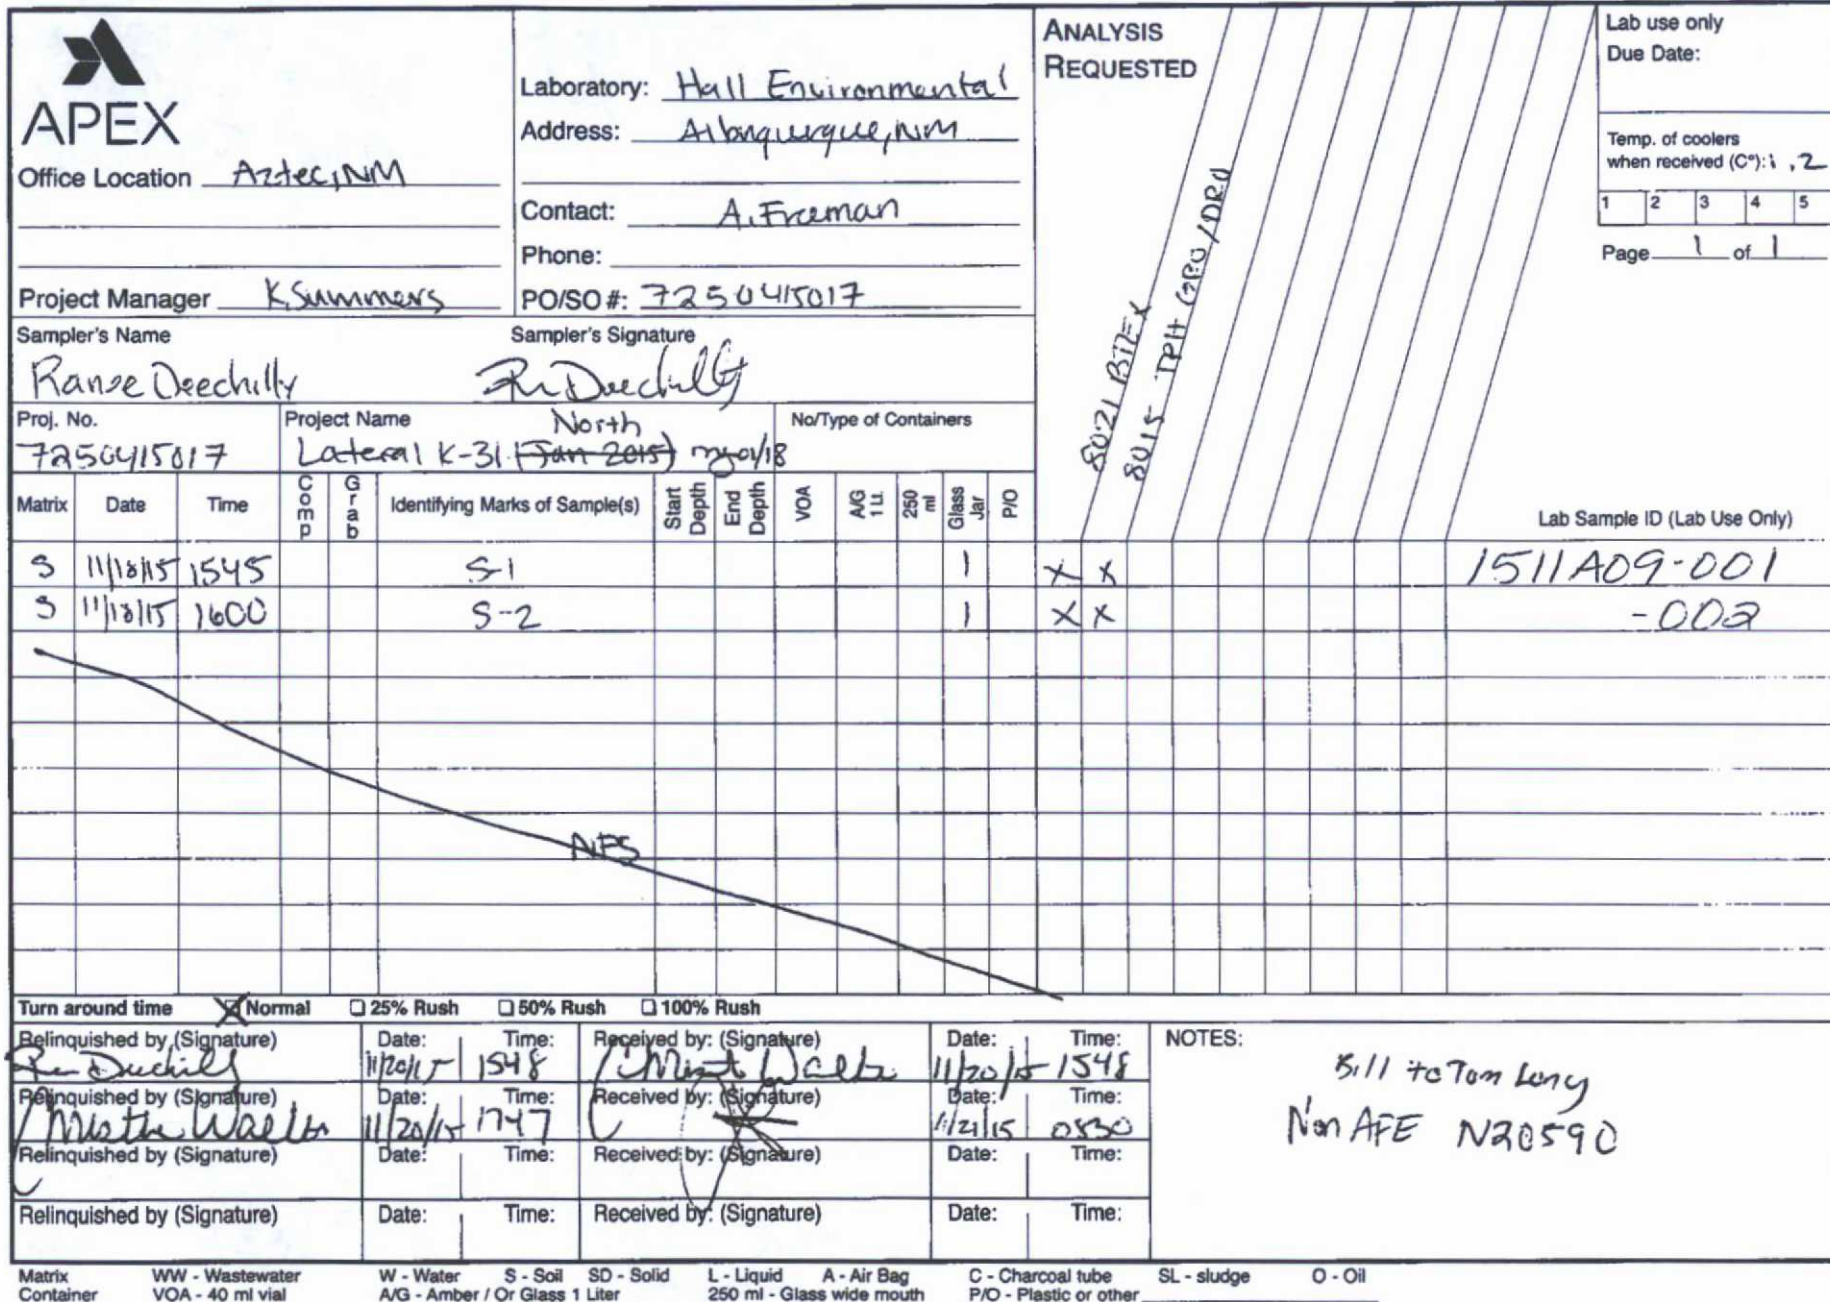 APEX
Office Location Aztec, NM
Project Manager K. Summers
Laboratory: Hall Environmental
Address: Albuquerque, NM
Contact: A. Freeman
Phone:
PO/SO #: 7250415017
ANALYSIS
REQUESTED
8021 BTEX
8015 TPH GRO/DRO
Lab use only
Due Date:
Temp. of coolers
when received (C°): 1.2
1 2 3 4 5
Page 1 of 1
Sampler's Name Sampler's Signature
Ranee Deechilly
Proj. No. Project Name No/Type of Containers
7250415017 Lateral K-31 (Jan 2015) North
Matrix Date Time Comp Grab Identifying Marks of Sample(s) Start Depth End Depth VOA A/G 1 Lt. 250 ml Glass Jar P/O Lab Sample ID (Lab Use Only)
S 11/18/15 1545 S-1 1 X X 1511A09-001
S 11/18/15 1600 S-2 1 X X -002
NFS
Turn around time X Normal 25% Rush 50% Rush 100% Rush
Relinquished by (Signature) Date: Time: Received by: (Signature) Date: Time: NOTES:
11/20/15 1548 11/20/15 1548
Relinquished by (Signature) Date: Time: Received by: (Signature) Date: Time:
11/20/15 1747 11/21/15 0830
Relinquished by (Signature) Date: Time: Received by: (Signature) Date: Time:
Relinquished by (Signature) Date: Time: Received by: (Signature) Date: Time:
Bill to Tom Long
Non AFE N20590
Matrix WW - Wastewater W - Water S - Soil SD - Solid L - Liquid A - Air Bag C - Charcoal tube SL - sludge O - Oil
Container VOA - 40 ml vial A/G - Amber / Or Glass 1 Liter 250 ml - Glass wide mouth P/O - Plastic or other